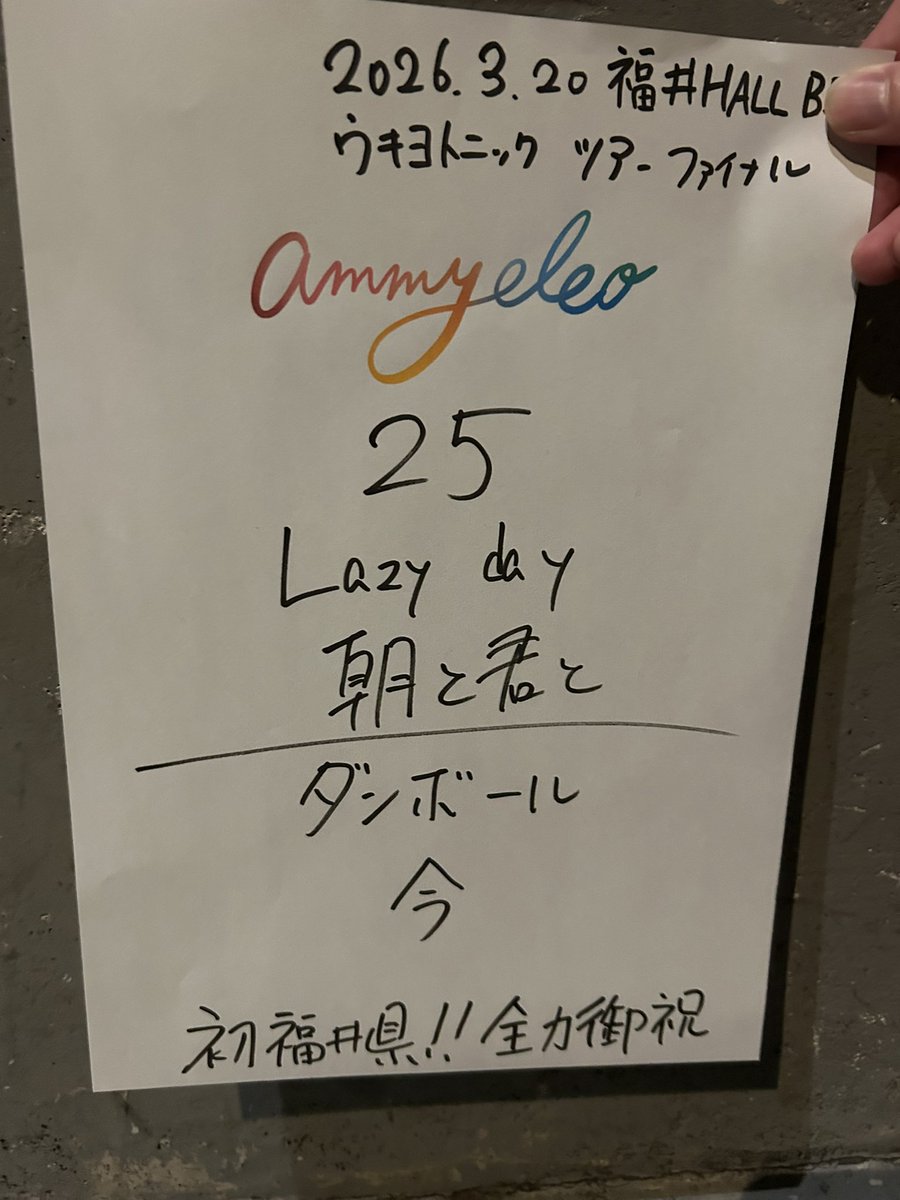 2026.3.20 福井HALL B
ウキヨトニック ツアーファイナル
ammyeleo
25
Lazy day
朝と君と
ダンボール
今
初福井県!! 全力御祝